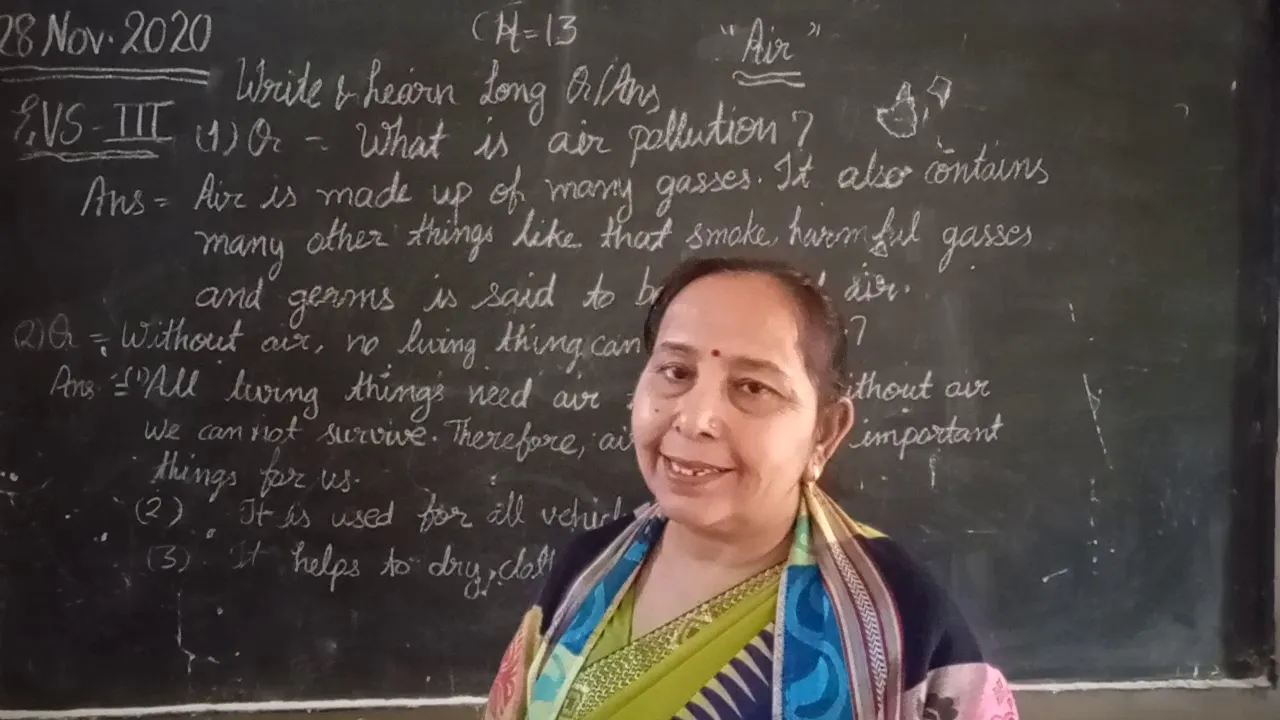 28 Nov. 2020
CH=13
"Air"
Write & learn Long Q/Ans
EVS-III
(1) Q = What is air pollution?
Ans = Air is made up of many gasses. It also contains
many other things like that smoke, harmful gasses
and germs is said to air.
(2) Q = Without air, no living thing can ?
Ans = (1) All living things need air without air
we can not survive. Therefore, important
things for us.
(2) It is used for all
(3) It helps to dry,